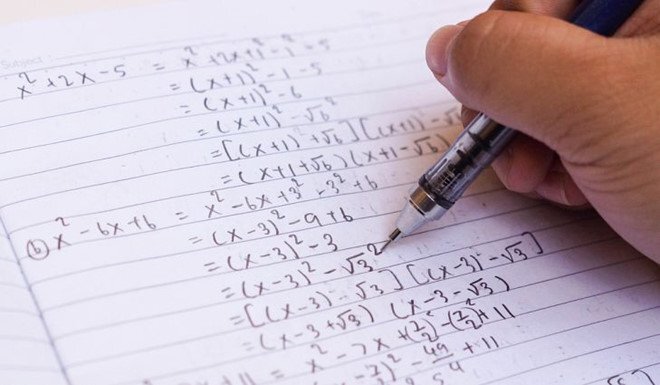 Subject:
x² + 2x - 5 = x² + 2x + 1² - 1² - 5
= (x+1)² - 1 - 5
= (x+1)² - 6
= (x+1)² - √6²
= [(x+1) + √6] [(x+1) - √6
= (x+1+√6)(x+1-√6)
(b) x² - 6x + 6 = x² - 6x + 3² - 3² + 6
= (x-3)² - 9 + 6
= (x-3)² - 3
= (x-3)² - √3²
= [(x-3) - √3] [(x-3) - √3]
= (x-3+√3) (x-3-√3)
= x² - 7x + (7/2)² - (7/2)² + 11
)² - 49/4 + 11